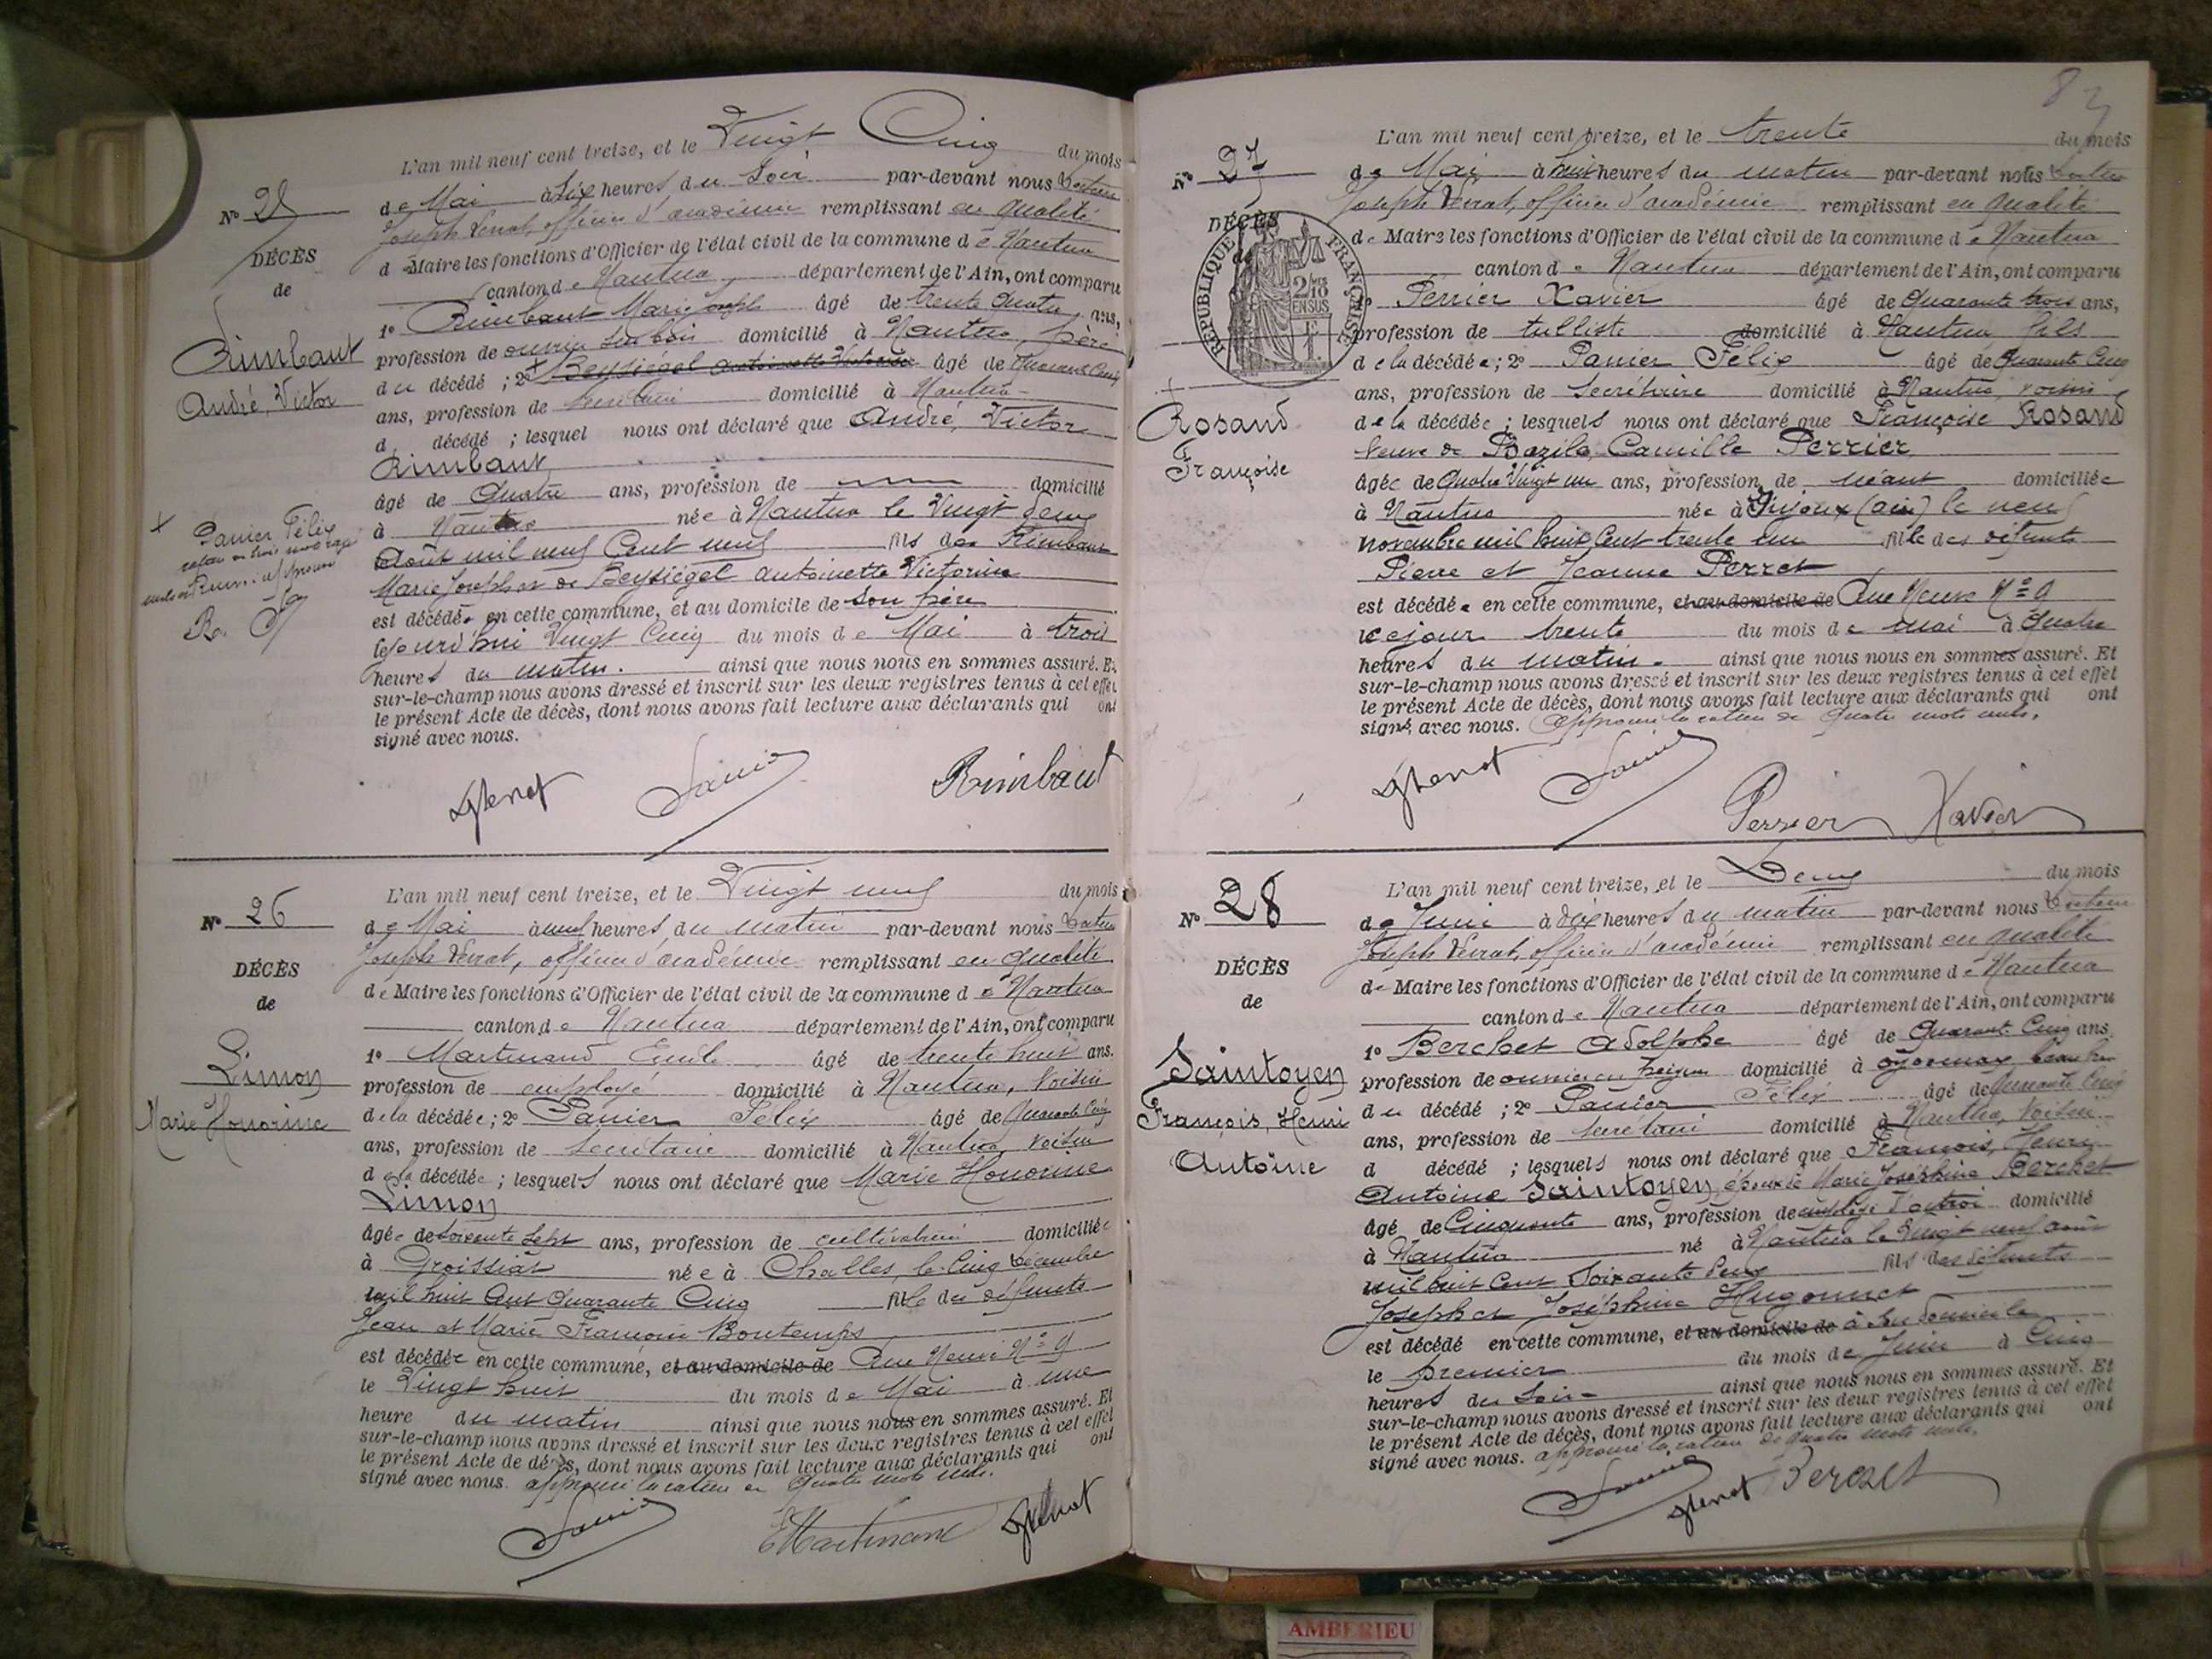 L'an mil neuf cent treize, et le Vingt Cinq du mois
Nº 25
de Mai à Six heures du Soir par-devant nous Docteur
Joseph Verrat, officier d'académie remplissant en qualité
DÉCÈS
de
d e Maire les fonctions d'Officier de l'état civil de la commune d e Nantua
canton d e Nantua département de l'Ain, ont comparu
1º Rimbaut Marie Joseph âgé de trente quatre ans,
Rimbaut
André, Victor
profession de ouvrier sur bois domicilié à Nantua, père
du décédé ; 2º + Beysiégel Antoinette Victorine âgé de Quarante Cinq
ans, profession de Secrétaire domicilié à Nantua
d décédé ; lesquel nous ont déclaré que André, Victor
Rimbaut
âgé de Quatre ans, profession de domicilié
à Nantua née à Nantua le Vingt deux
+ Panier Félix
Août mil neuf Cent neuf fils des Rimbaut
Marie Joseph et de Beysiégel Antoinette Victorine
est décédé en cette commune, et au domicile de son père
R.
Cejourd'hui Vingt Cinq du mois de Mai à trois
heures du matin. ainsi que nous nous en sommes assuré. Et
sur-le-champ nous avons dressé et inscrit sur les deux registres tenus à cet effet
le présent Acte de décès, dont nous avons fait lecture aux déclarants qui ont
signé avec nous.
Panier
Rimbaut
L'an mil neuf cent treize, et le Vingt neuf du mois
Nº 26
de Mai à neuf heures du matin par-devant nous Docteur
Joseph Verrat, officier d'académie remplissant en qualité
DÉCÈS
de
de Maire les fonctions d'Officier de l'état civil de la commune d e Nantua
canton d e Nantua département de l'Ain, ont comparu
1º Martinand Emile âgé de trente huit ans.
Limon
Marie Honorine
profession de employé domicilié à Nantua, Voisin
de la décédée ; 2º Panier Félix âgé de Quarante Cinq
ans, profession de Secrétaire domicilié à Nantua Voisin
d e la décédée ; lesquels nous ont déclaré que Marie Honorine
Limon
âgée de soixante sept ans, profession de cultivatrice domiciliée
à Groissiat née à Challes, le Cinq Décembre
mil huit Cent Quarante Cinq fille des défunts
Jean et Marie Françoise Bontemps
est décédée en cette commune, et au domicile de Rue Neuve Nº 9
le Vingt huit du mois de Mai à une
heure du matin ainsi que nous nous en sommes assuré. Et
sur-le-champ nous avons dressé et inscrit sur les deux registres tenus à cet effet
le présent Acte de décès, dont nous avons fait lecture aux déclarants qui ont
signé avec nous. approuvé la rature de Quatre mots nuls.
Panier
EMartinand
L'an mil neuf cent treize, et le trente du mois
Nº 27
de Mai à huit heures du matin par-devant nous Docteur
Joseph Verrat, officier d'académie remplissant en qualité
DÉCÈS
de
RÉPUBLIQUE FRANÇAISE
2/10
EN SUS
de Maire les fonctions d'Officier de l'état civil de la commune d e Nantua
canton d e Nantua département de l'Ain, ont comparu
1º Perrier Xavier âgé de Quarante trois ans,
profession de tulliste domicilié à Nantua fils
de la décédée ; 2º Panier Félix âgé de Quarante Cinq
ans, profession de Secrétaire domicilié à Nantua, voisin
Rosand
Françoise
de la décédée ; lesquels nous ont déclaré que Françoise Rosand
Veuve de Bazile Camille Perrier
âgée de Quatre Vingt un ans, profession de néant domiciliée
à Nantua née à Mijoux (Ain) le neuf
novembre mil huit Cent trente un fille des défunts
Pierre et Jeanne Perret
est décédée en cette commune, et au domicile de Rue Neuve Nº 9
ce jour trente du mois de mai à Quatre
heures du matin. ainsi que nous nous en sommes assuré. Et
sur-le-champ nous avons dressé et inscrit sur les deux registres tenus à cet effet
le présent Acte de décès, dont nous avons fait lecture aux déclarants qui ont
signé avec nous. Approuvé la rature de Quatre mots nuls.
Panier
Perrier Xavier
L'an mil neuf cent treize, et le Deux du mois
Nº 28
de Juin à dix heures du matin par-devant nous Docteur
Joseph Verrat, officier d'académie remplissant en qualité
DÉCÈS
de
de Maire les fonctions d'Officier de l'état civil de la commune d e Nantua
canton d e Nantua département de l'Ain, ont comparu
1º Berchet Adolphe âgé de Quarante Cinq ans
Saintoyen
François, Henri
Antoine
profession de ouvrier en peignes domicilié à Oyonnax beau frère
du décédé ; 2º Panier Félix âgé de Quarante Cinq
ans, profession de Secrétaire domicilié à Nantua, Voisin
d décédé ; lesquels nous ont déclaré que François, Henri
Antoine Saintoyen, époux de Marie Joséphine Berchet
âgé de Cinquante ans, profession de employé d'octroi domicilié
à Nantua né à Nantua le Vingt neuf août
mil huit Cent Soixante deux fils des défunts
Joseph et Joséphine Hugonnet
est décédé en cette commune, et au domicile de à son domicile
le premier du mois de Juin à Cinq
heures du Soir ainsi que nous nous en sommes assuré. Et
sur-le-champ nous avons dressé et inscrit sur les deux registres tenus à cet effet
le présent Acte de décès, dont nous avons fait lecture aux déclarants qui ont
signé avec nous. approuvé la rature de quatre mots nuls.
Panier
Berchet
AMBERIEU